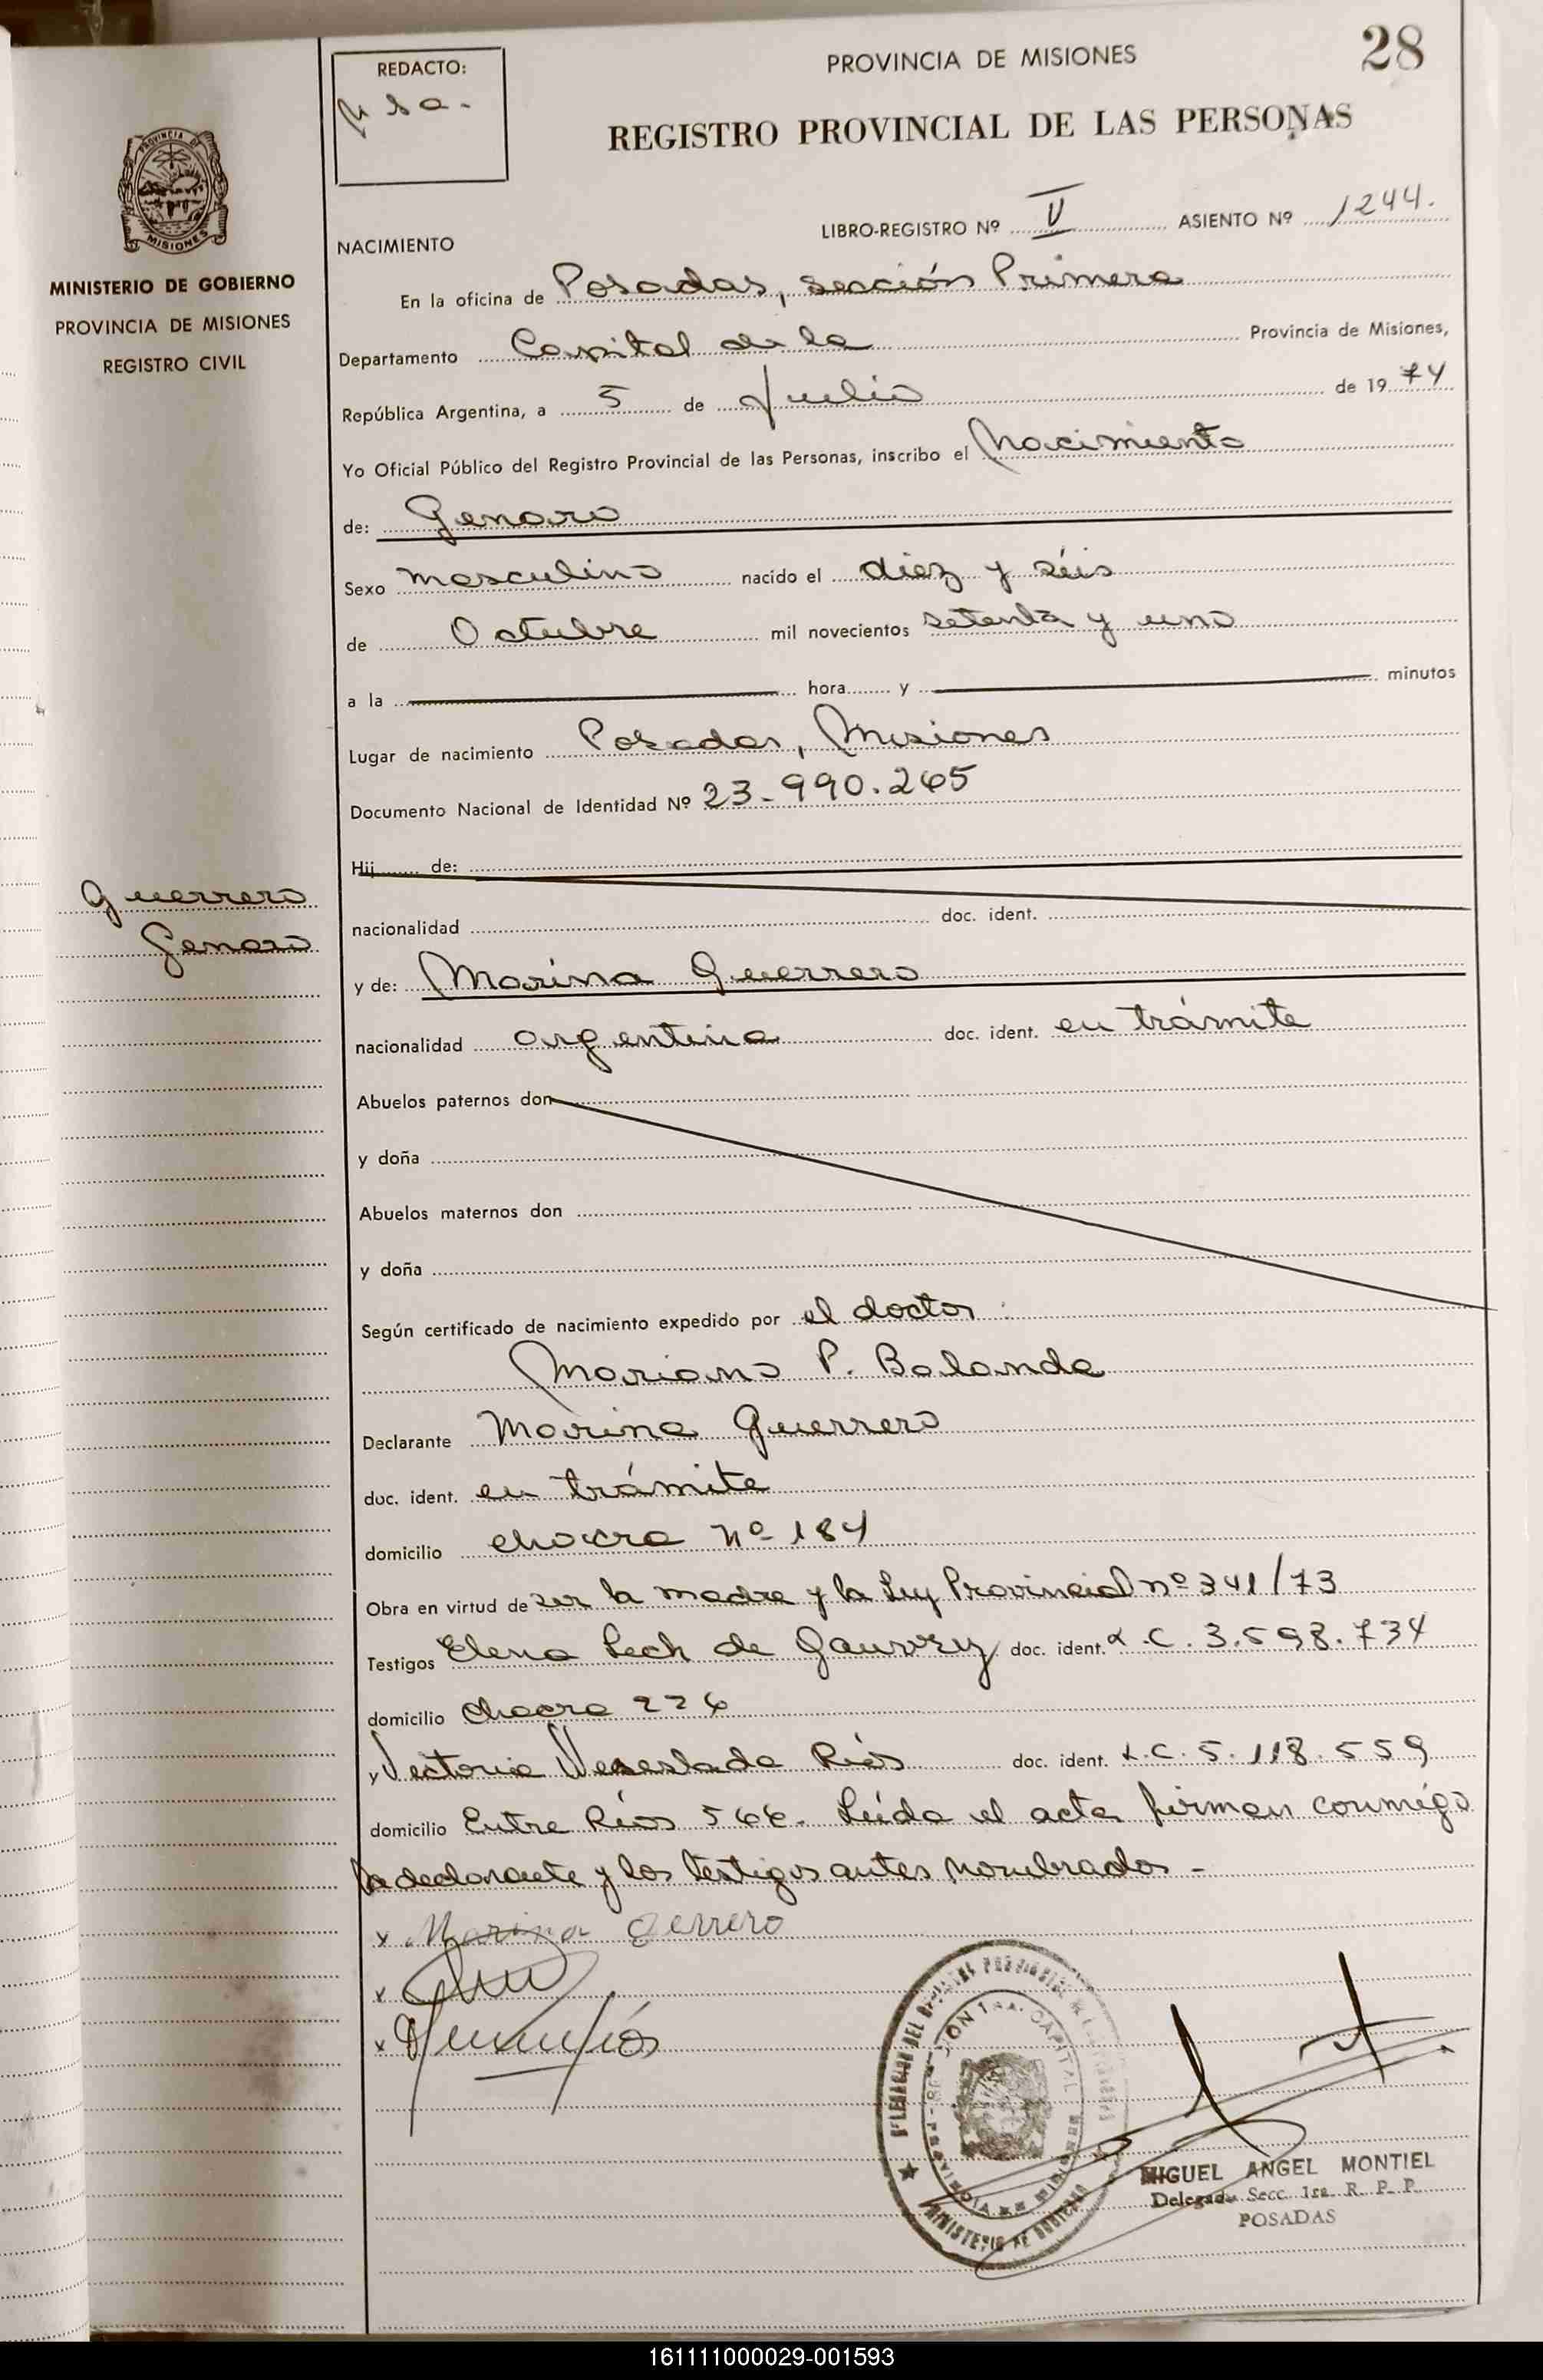 28
PROVINCIA DE MISIONES
REGISTRO PROVINCIAL DE LAS PERSONAS
REDACTO:
MINISTERIO DE GOBIERNO
PROVINCIA DE MISIONES
REGISTRO CIVIL
LIBRO-REGISTRO Nº V ASIENTO Nº 1244.
NACIMIENTO
En la oficina de Posadas, sección Primera
Departamento Capital de la Provincia de Misiones,
República Argentina, a 5 de Julio de 1974
Yo Oficial Público del Registro Provincial de las Personas, inscribo el Nacimiento
de: Genaro
Sexo masculino nacido el diez y séis
de Octubre mil novecientos setenta y uno
a la hora y minutos
Lugar de nacimiento Posadas, Misiones
Documento Nacional de Identidad Nº 23-990.265
Hij de:
Guerrero
Genaro
nacionalidad doc. ident.
y de: Marina Guerrero
nacionalidad argentina doc. ident. en trámite
Abuelos paternos don
y doña
Abuelos maternos don
y doña
Según certificado de nacimiento expedido por el doctor:
Mariano P. Balanda
Declarante Marina Guerrero
doc. ident. en trámite
domicilio chacra nº 184
Obra en virtud de ser la madre y la Ley Provincial nº 341/73
Testigos Elena Lech de doc. ident. L.C. 3.598.734
domicilio chacra 226
y Victoria Ríos doc. ident. L.C. 5.118.559
domicilio Entre Ríos 566. Leída el acta firman conmigo
la declarante y los testigos antes nombrados -
x Marina Gerrero
x
x
MIGUEL ANGEL MONTIEL
Delegado Secc. 1ra. R. P. P.
POSADAS
MINISTERIO DE GOBIERNO
161111000029-001593